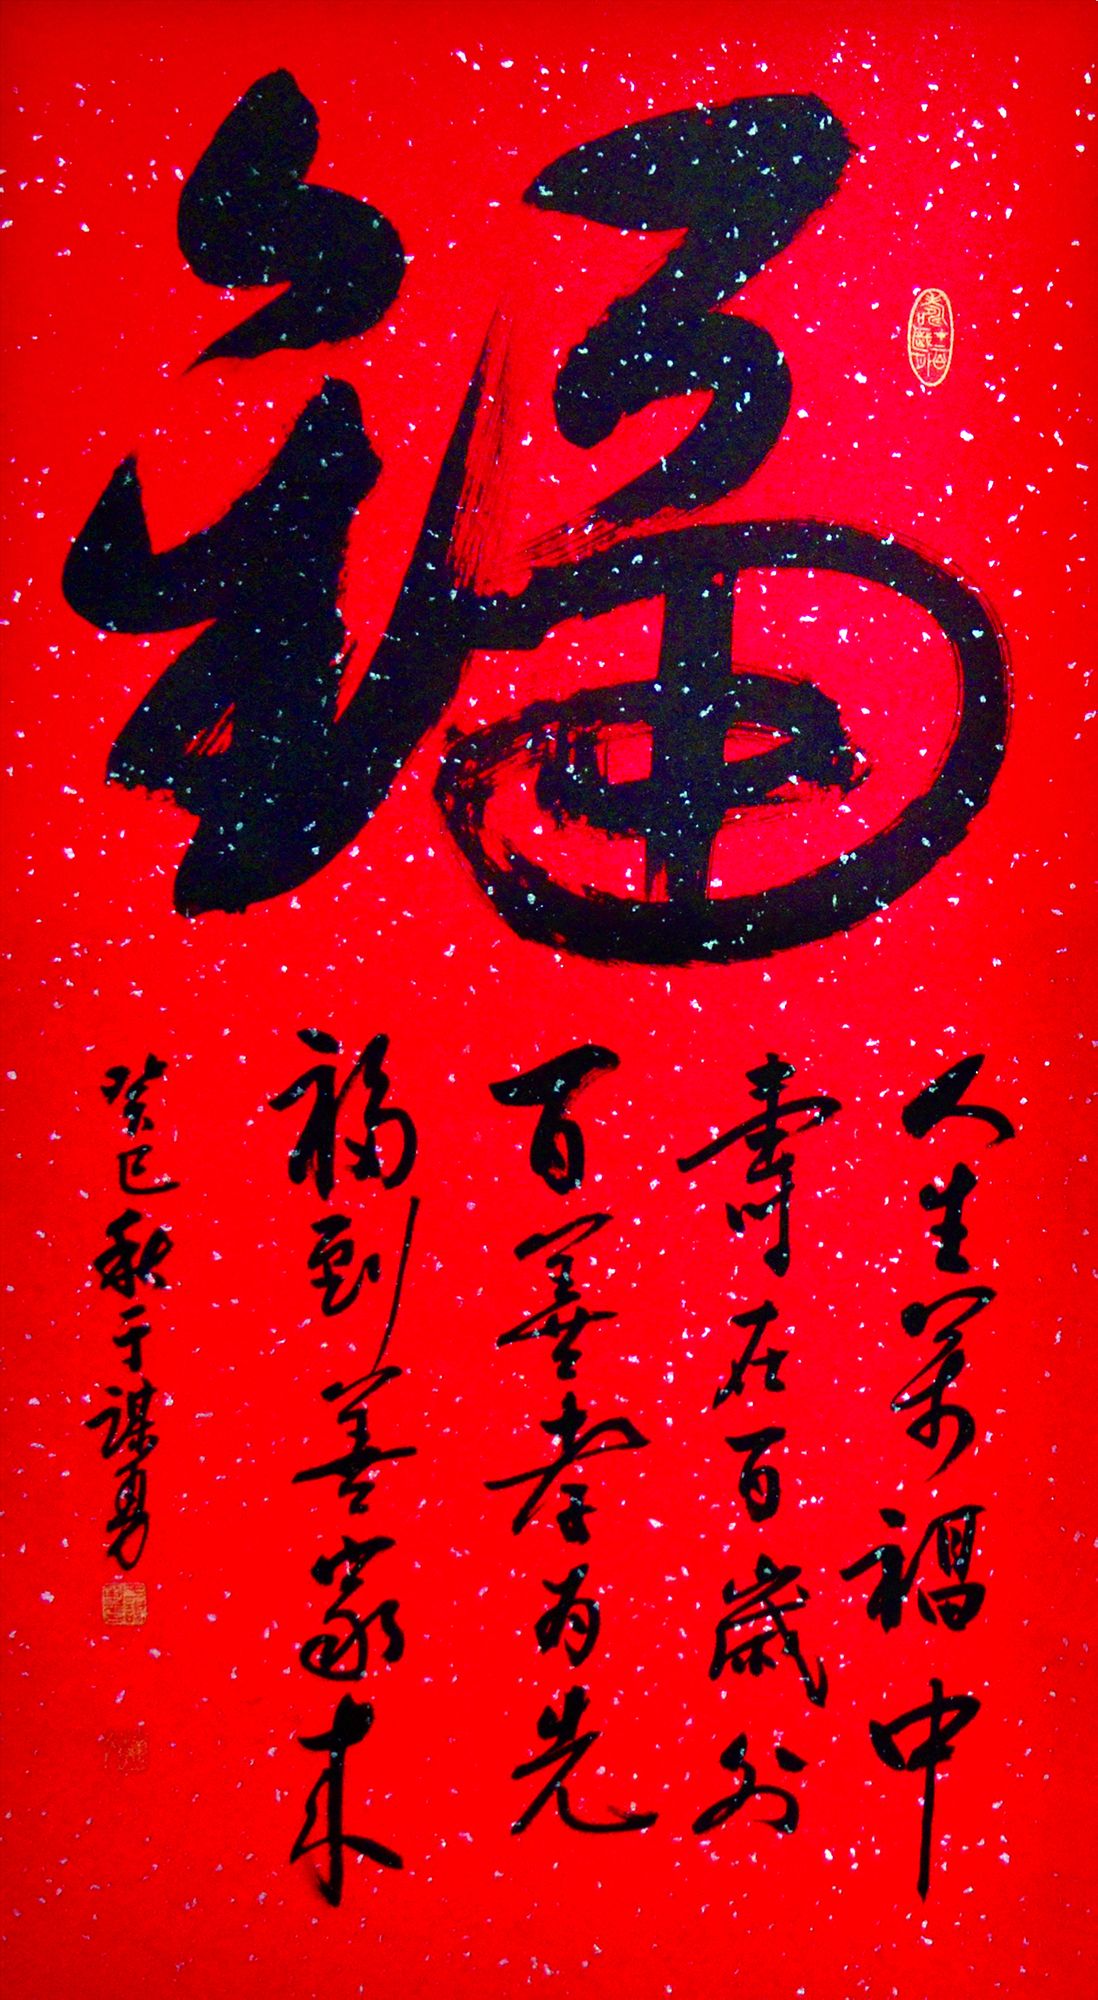 福
人生萬福中
壽在百歲外
百善孝為先
福到善家来
癸巳秋于謀勇